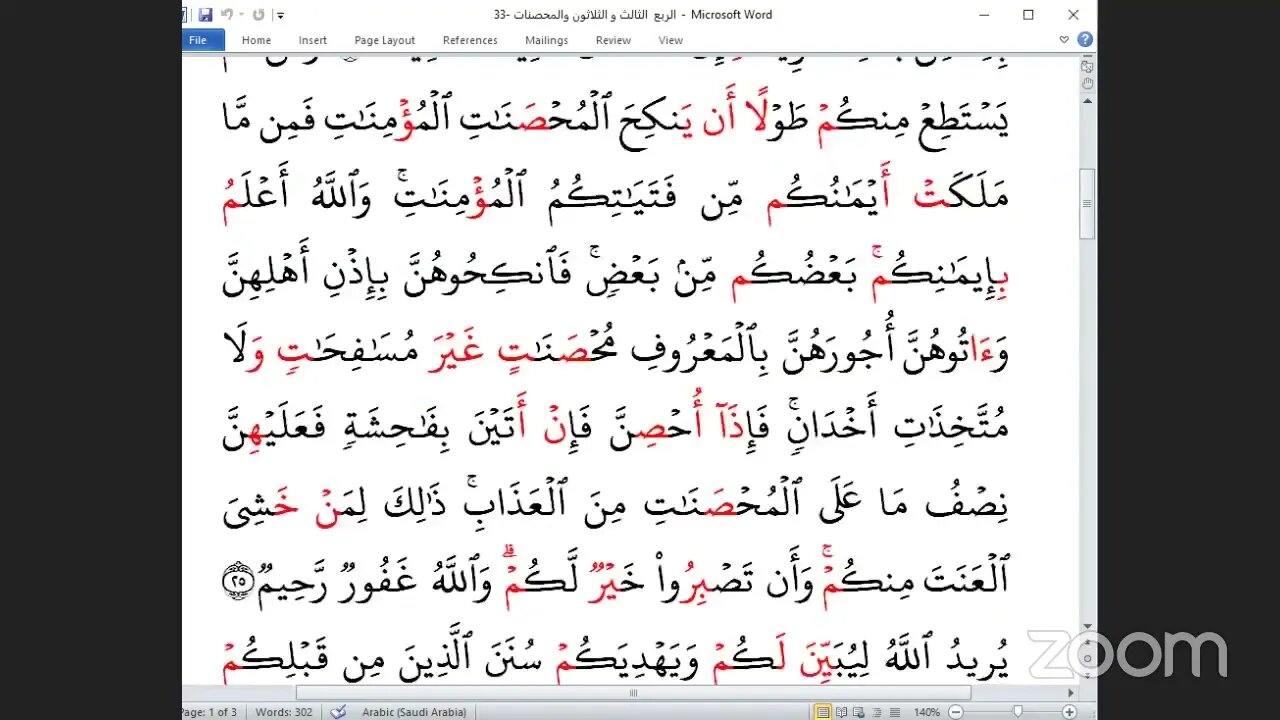 الربع الثالث و الثلاثون والمحصنات -33 - Microsoft Word
File Home Insert Page Layout References Mailings Review View
يَسۡتَطِعۡ مِنكُمۡ طَوۡلًا أَن يَنكِحَ ٱلۡمُحۡصَنَٰتِ ٱلۡمُؤۡمِنَٰتِ فَمِن مَّا
مَلَكَتۡ أَيۡمَٰنُكُم مِّن فَتَيَٰتِكُمُ ٱلۡمُؤۡمِنَٰتِۚ وَٱللَّهُ أَعۡلَمُ
بِإِيمَٰنِكُمۚ بَعۡضُكُم مِّنۢ بَعۡضٖۚ فَٱنكِحُوهُنَّ بِإِذۡنِ أَهۡلِهِنَّ
وَءَاتُوهُنَّ أُجُورَهُنَّ بِٱلۡمَعۡرُوفِ مُحۡصَنَٰتٍ غَيۡرَ مُسَٰفِحَٰتٖ وَلَا
مُتَّخِذَٰتِ أَخۡدَانٖۚ فَإِذَآ أُحۡصِنَّ فَإِنۡ أَتَيۡنَ بِفَٰحِشَةٖ فَعَلَيۡهِنَّ
نِصۡفُ مَا عَلَى ٱلۡمُحۡصَنَٰتِ مِنَ ٱلۡعَذَابِۚ ذَٰلِكَ لِمَنۡ خَشِيَ
ٱلۡعَنَتَ مِنكُمۡۚ وَأَن تَصۡبِرُواْ خَيۡرٞ لَّكُمۡۗ وَٱللَّهُ غَفُورٞ رَّحِيمٞ ٢٥
يُرِيدُ ٱللَّهُ لِيُبَيِّنَ لَكُمۡ وَيَهۡدِيَكُمۡ سُنَنَ ٱلَّذِينَ مِن قَبۡلِكُمۡ
zoom
Page: 1 of 3 Words: 302 Arabic (Saudi Arabia) 140%